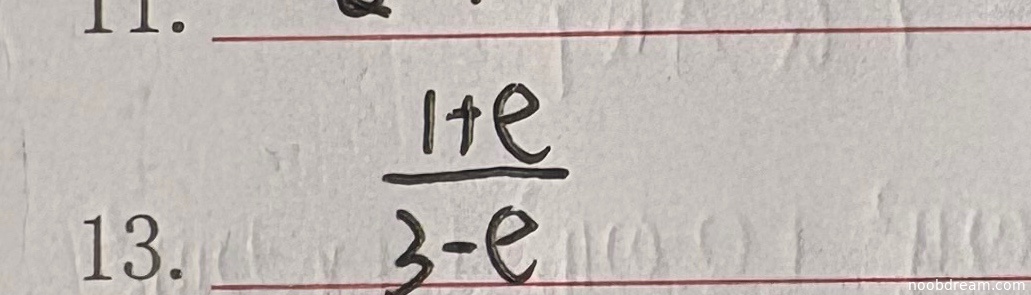 11.
1+e
13. 3-e
noobdream.com